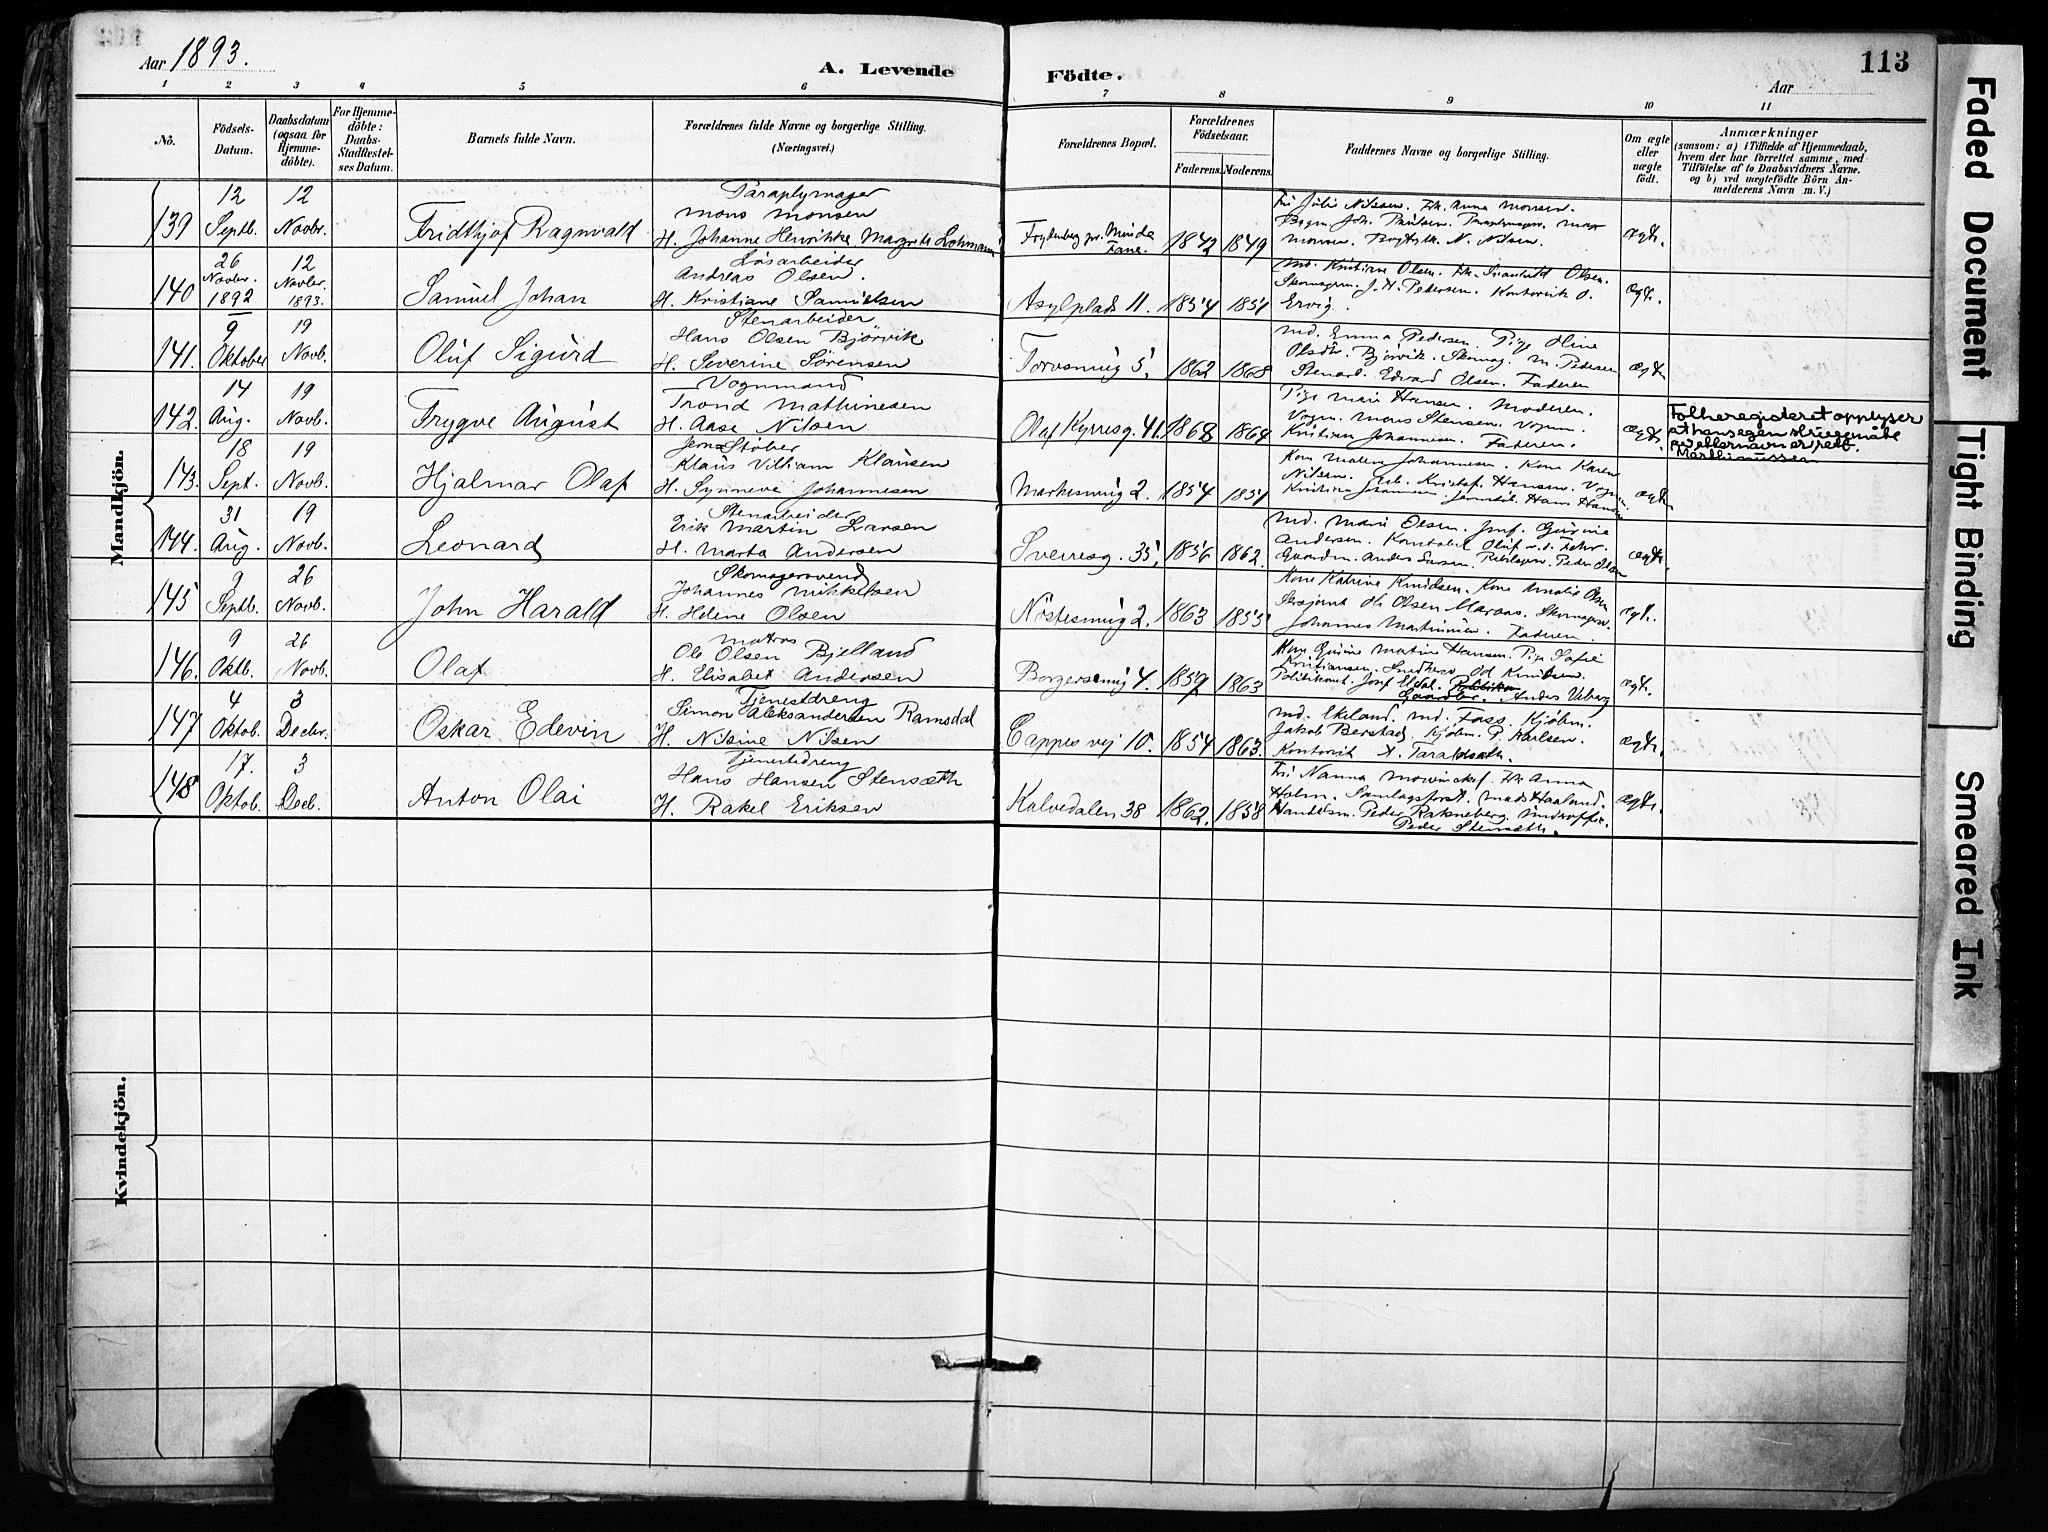 Aar 1893.
A. Levende Födte.
Aar
113
1 2 3 4 5 6 7 8 9 10 11
No.
Födsels-Datum.
Daabsdatum (ogsaa for Hjemmedöbte).
For Hjemmedöbte: Daabs-Stadfestelses Datum.
Barnets fulde Navn.
Forældrenes fulde Navne og borgerlige Stilling. (Næringsvei.)
Forældrenes Bopæl.
Forældrenes Födselsaar.
Faderens. Moderens.
Faddernes Navne og borgerlige Stilling.
Om ægte eller uægte födt.
Anmærkninger
(saasom: a) i Tilfælde af Hjemmedaab,
hvem der har forrettet samme, med
Tilföielse af to Daabsvidners Navne.
og b) ved uægtefödte Börn An-
melderens Navn m. V.)
Mandkjön.
139 12 Septb. 12 Novbr. Fridthjof Ragnvald
Paraplymager
Mons Monsen
H. Johanne Henrikke Margrete Lohmann
Minde Fane. 1842 1849
Frk. Anna Monsen.
ægte.
140 26 Novbr. 1892 12 Novbr. 1893. Samuel Johan
Løsarbeider
Andreas Olsen.
H. Kristiane Samuelsen
Asylplads 11. 1854 1851
Md. Kristine Olsen. Olsen.
J. H. Pedersen.
ægte.
141. 9 Oktober 19 Novb. Oluf Sigurd
Stenarbeider
Hans Olsen Bjørvik
H. Severine Sørensen
Torvsmug 5. 1862 1868
Md. Emma Pedersen. Pige Oline
Olsdtr. Bjørvik. Skomag. M. Pedersen
Stenarb. Edvard Olsen. Faderen
ægte
142. 14 Aug. 19 Novb. Trygve August
Vognmand
Trond Mathinesen
H. Aase Nilsen
Olaf Kyrresg. 41. 1868 1864
Pige Mari Hansen. Moderen.
Vogn. Mons Stensen. Vognm.
Kristian Johannesen. Faderen.
ægte.
Folkeregisteret opplyser
at hans egen skrivemåte
av etternavnet er, rett.
Marthinussen
143. 18 Sept. 19 Novb. Hjalmar Olaf
Jernstøber
Klaus Villiam Klausen
H. Synneve Johannesen
Markesmug 2. 1854 1851
Kone Malene Johannesen. Kone Karen
Nilsen. Kristof. Hansen.
Hans Hansen
ægte
144. 31 Aug. 19 Novb. Leonard
Stenarbeider
Erik Martin Larsen
H. Marta Andersen
Sverresg. 35. 1856 1862.
Md. Marie Olsen. Jmf. Gurine
Andersen. Konstabel Oluf
Peder Olsen
ægte.
145 9 Septb. 26 Novb. John Harald
Skomagersvend
Johannes Mikkelsen
H. Helene Olsen
Nöstesmug 2. 1863 1855
Kone Katrine Knudsen. Kone Amalie Olsen
Sersjant Ole Olsen
Johannes Martinusen. Faderen.
ægte.
146. 9 Oktb. 26 Novb. Olaf
Matros
Ole Olsen Bjelland
H. Elisabet Andersen
Borgersmug 4. 1859 1863
Kone Gurine Matine Hansen. Pige Sofie
Kristiansen. Knudsen.
Anders Viberg
ægte.
147 4 Oktob. 3 Decbr. Oskar Edevin
Tjenestdreng
Simon Aleksandersen Ramsdal
H. Nilsine Nilsen
Cappes vej 10. 1854 1863.
Md. Ekeland. Md. Foss. Kjøbm.
Jakob Berstad. Kjøbm. P. Karlsen.
ægte.
148 17. Oktob. 3 Decb. Anton Olai
Tjenestedreng
Hans Hansen Stensæth
H. Rakel Eriksen
Kalvedalen 38 1862. 1858
Frk. Nanna Mowinckel. Frk. Anna
Holm. Mads Haaland.
Handelsm. Peder Rakneberg.
Peder Stensæth.
ægte.
Kvindekjön.
Faded Document
Tight Binding
Smeared Ink